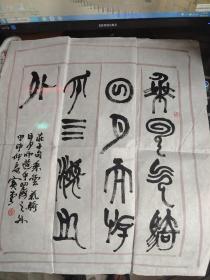 乘云气騎
日月而游
乎四海之
外
莊子句乘雲氣騎
日月而遊乎四海之外
甲申仲夏